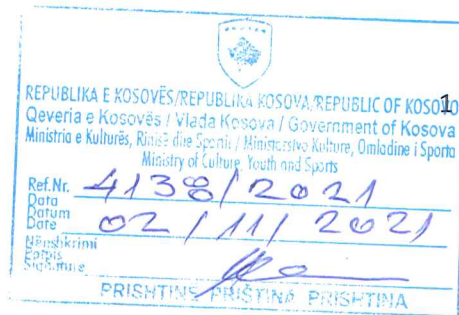 REPUBLIKA E KOSOVËS/REPUBLIKA KOSOVA/REPUBLIC OF KOSOVO
1
Qeveria e Kosovës / Vlada Kosova / Government of Kosova
Ministria e Kulturës, Rinisë dhe Sporit / Ministarstvo Kulture, Omladine i Sporta
Ministry of Culture, Youth and Sports
Ref.Nr. 4138/2021
Data
Datum
Date 02/11/2021
Nënshkrimi
Potpis
Signature
PRISHTINË PRIŠTINA PRISHTINA